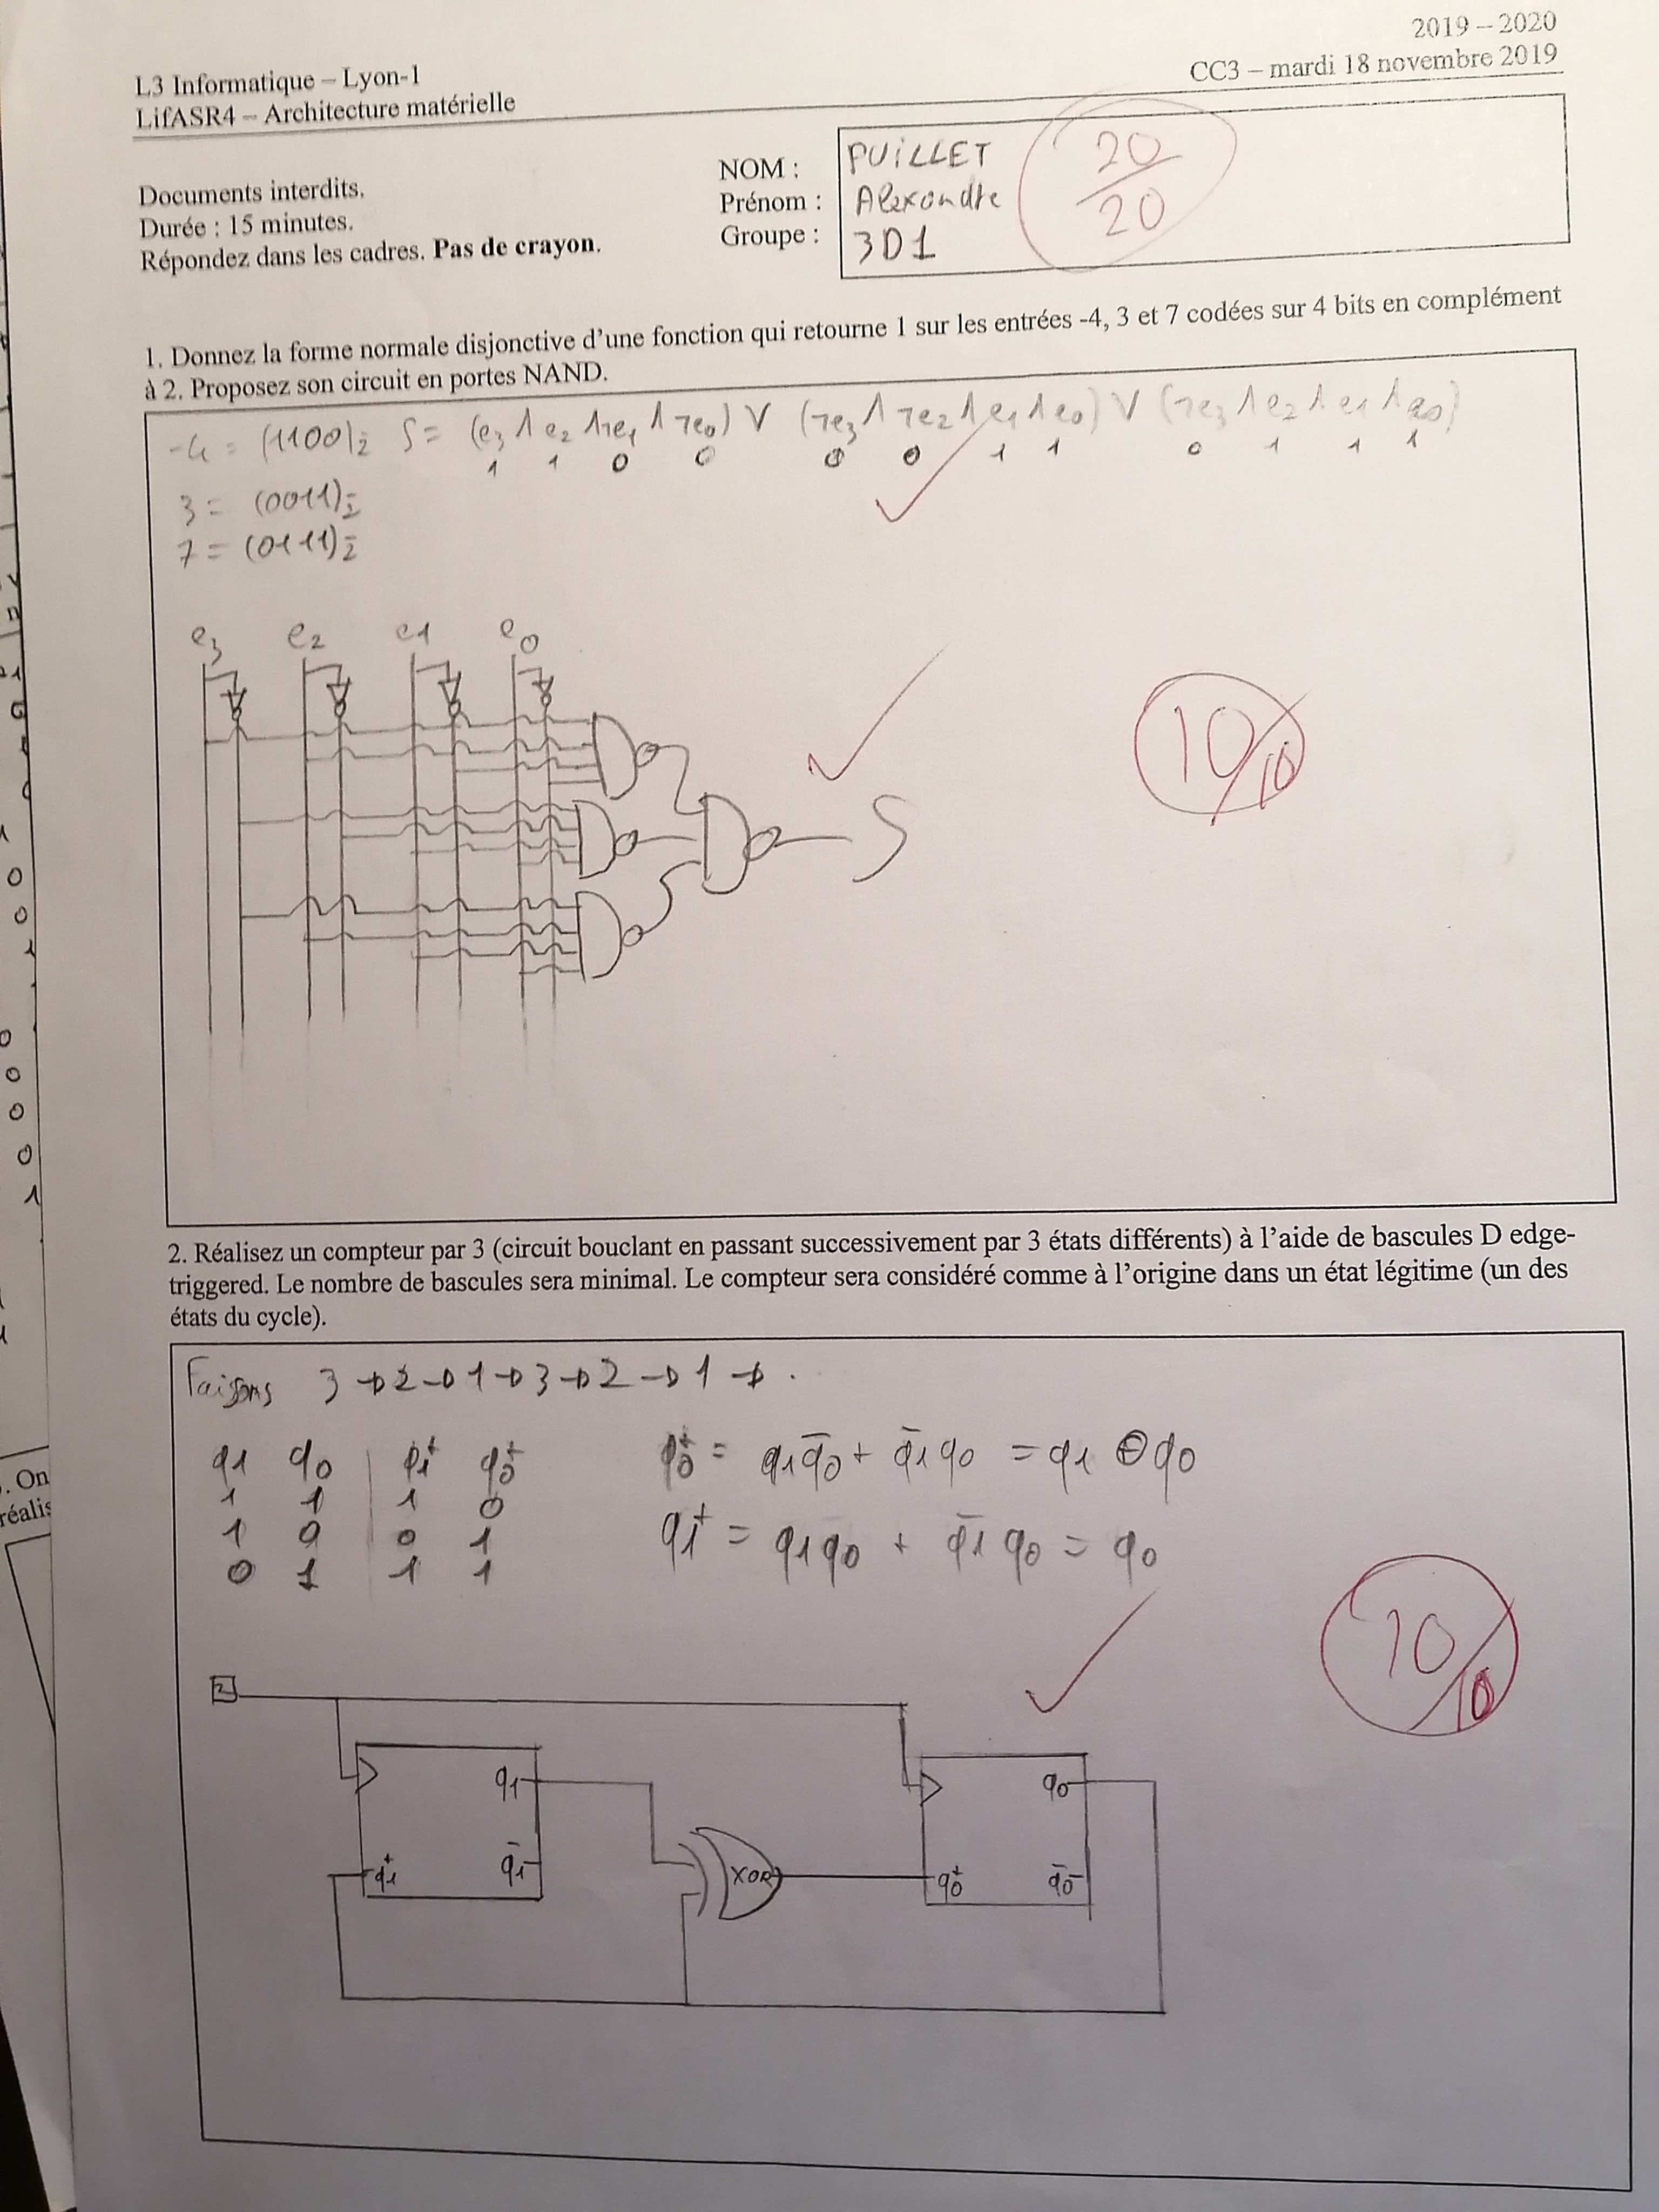 2019 – 2020
L3 Informatique – Lyon-1
CC3 – mardi 18 novembre 2019
LifASR4 – Architecture matérielle
Documents interdits.
Durée : 15 minutes.
Répondez dans les cadres. Pas de crayon.
NOM : PUILLET
Prénom : Alexandre
Groupe : 3D1
20/20
1. Donnez la forme normale disjonctive d’une fonction qui retourne 1 sur les entrées -4, 3 et 7 codées sur 4 bits en complément
à 2. Proposez son circuit en portes NAND.
-4 = (1100)2̄ S = (e3 ∧ e2 ∧ ¬e1 ∧ ¬e0) ∨ (¬e3 ∧ ¬e2 ∧ e1 ∧ e0) ∨ (¬e3 ∧ e2 ∧ e1 ∧ e0)
1 1 0 0 0 0 1 1 0 1 1 1
3 = (0011)2̄
7 = (0111)2̄
e3 e2 e1 e0
S
10/10
2. Réalisez un compteur par 3 (circuit bouclant en passant successivement par 3 états différents) à l’aide de bascules D edge-
triggered. Le nombre de bascules sera minimal. Le compteur sera considéré comme à l’origine dans un état légitime (un des
états du cycle).
Faisons 3 → 2 → 1 → 3 → 2 → 1 → .
q1 q0 | q1⁺ q0⁺
1 1 1 0
1 0 0 1
0 1 1 1
q0⁺ = q1q̄0 + q̄1q0 = q1 ⊕ q0
q1⁺ = q1q0 + q̄1q0 = q0
10/10
q1
q̄1
q1⁺
XOR
q0
q̄0
q0⁺
0
0
1
0
0
0
0
1
. On
réalis